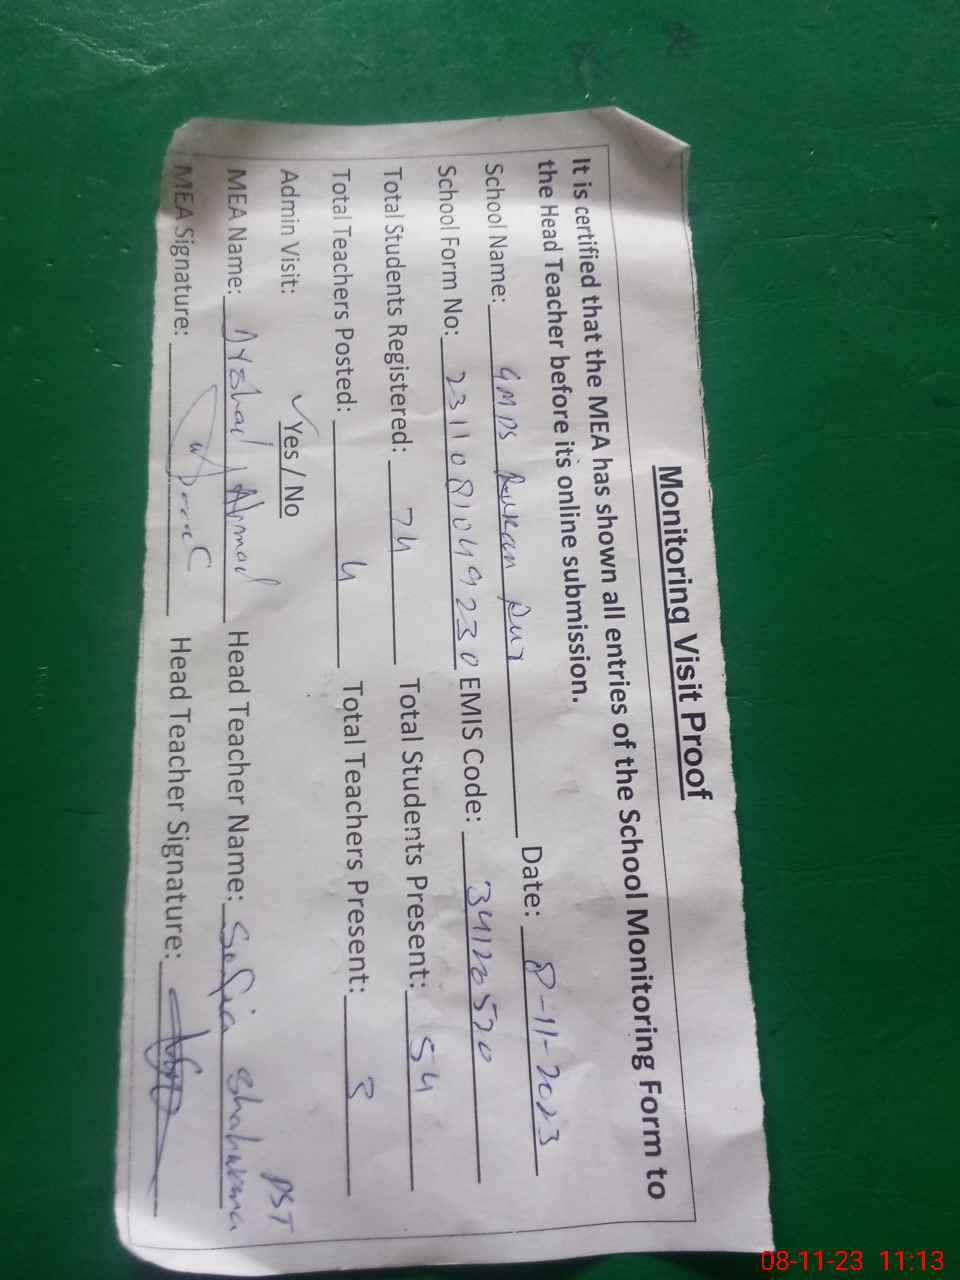 Monitoring Visit Proof
It is certified that the MEA has shown all entries of the School Monitoring Form to
the Head Teacher before its online submission.
School Name: GMPS Rukan Pur Date: 8-11-2023
School Form No: 2311081049230 EMIS Code: 34120520
Total Students Registered: 74 Total Students Present: 54
Total Teachers Posted: 4 Total Teachers Present: 3
Admin Visit: ✓Yes / No PST
MEA Name: Arshad Ahmad Head Teacher Name: Sofia
MEA Signature: Head Teacher Signature:
08-11-23 11:13